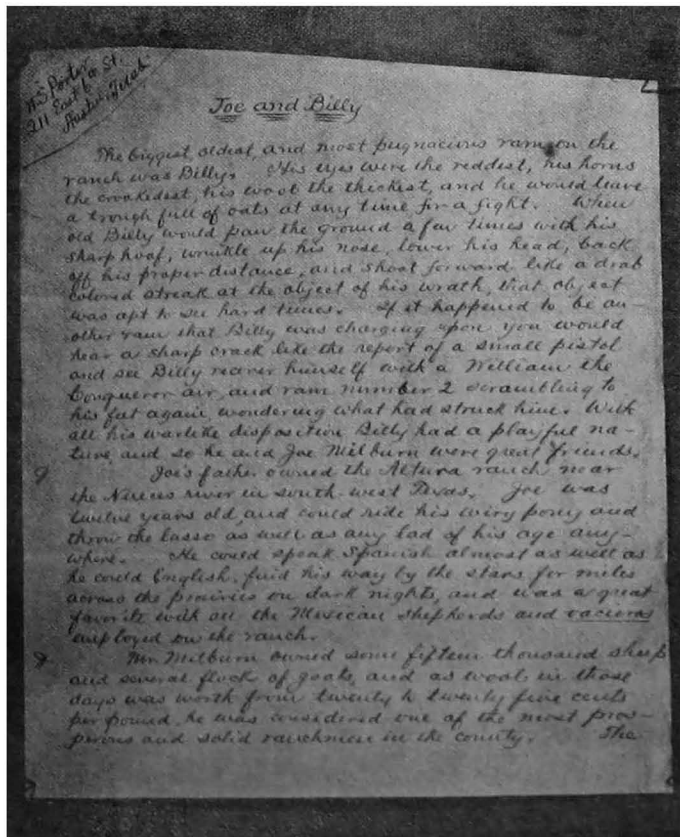 W S Porter
211 East 6th St.
Austin, Texas
Joe and Billy
The biggest, oldest, and most pugnacious ram on the
ranch was Billy. His eyes were the reddest, his horns
the crookedest, his wool the thickest, and he would leave
a trough full of oats at any time for a fight. When
old Billy would paw the ground a few times with his
sharp hoof, wrinkle up his nose, lower his head, back
off his proper distance, and shoot forward like a drab
colored streak at the object of his wrath, that object
was apt to see hard times. If it happened to be an-
other ram that Billy was charging upon you would
hear a sharp crack like the report of a small pistol
and see Billy recover himself with a William the
Conqueror air, and ram number 2 scrambling to
his feet again wondering what had struck him. With
all his warlike disposition Billy had a playful na-
ture, and so he and Joe Milburn were great friends.
Joe's father owned the Altura ranch near
the Nueces river in south-west Texas. Joe was
twelve years old, and could ride his wiry pony and
throw the lasso as well as any lad of his age any-
where. He could speak Spanish almost as well as
he could English, find his way by the stars for miles
across the prairies on dark nights, and was a great
favorite with all the Mexican shepherds and vacieros
employed on the ranch.
Mr. Milburn owned some fifteen thousand sheep
and several flock of goats, and as wool in those
days was worth from twenty to twenty five cents
per pound, he was considered one of the most pros-
perous and solid ranchmen in the county. The